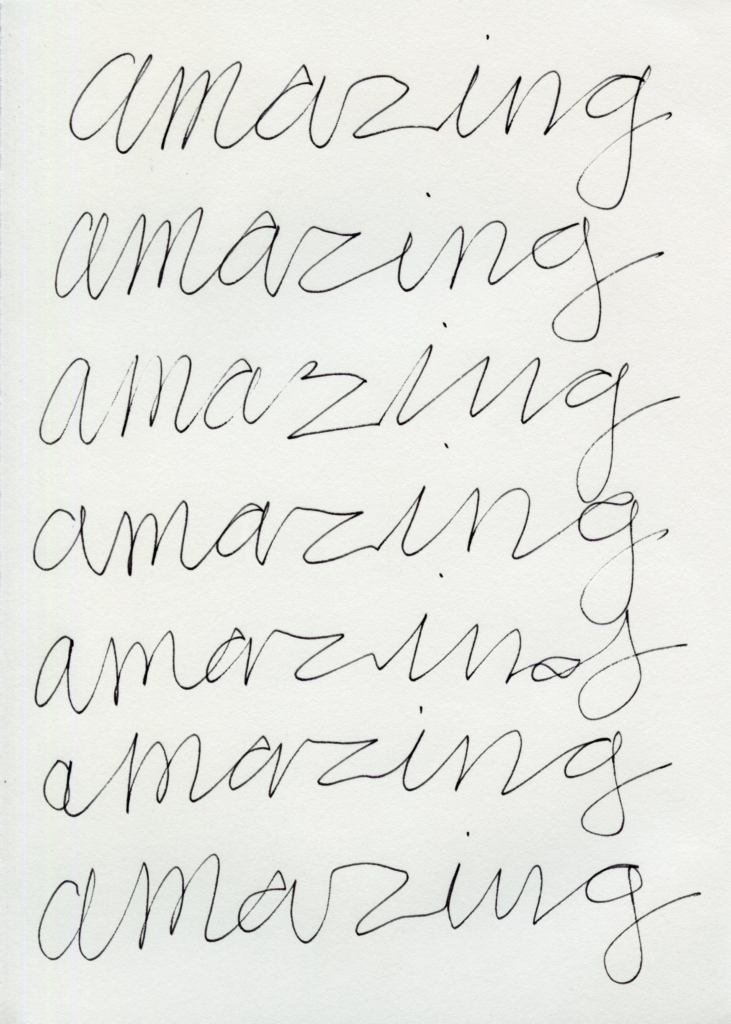 amazing
amazing
amazing
amazing
amazing
amazing
amazing